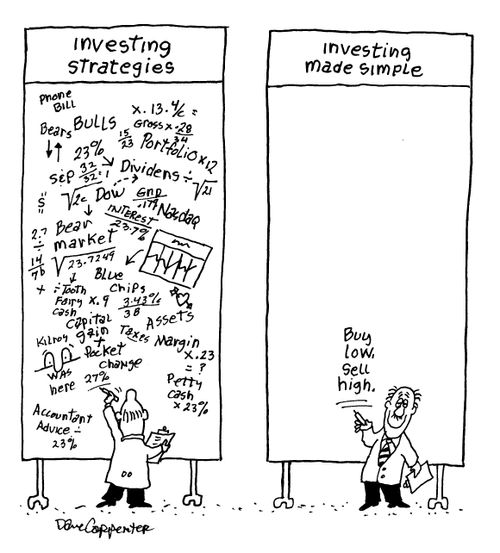 investing
strategies
phone
BILL
x. 13. 4/c =
Bears BULLS
Gross x .28
34
15
23
Portfolio x 12
23%
S&P 32
32.1
Dividens ÷ √21
$
√2c Dow
GNP
.179
Nasdaq
INTEREST
23.7%
2.7
÷
14
76
Bear
market
√23.7249
Blue
chips
+ ÷ Tooth
Fairy x. 9
cash
3.43%
38
Capital
gain
Taxes
Assets
Kilroy
was
here
+
Pocket
change
27%
Margin
x .23
= ?
Petty
cash
x 23%
Accountant
Advice ÷
23%
investing
made simple
Buy
low.
Sell
high.
Dave Carpenter